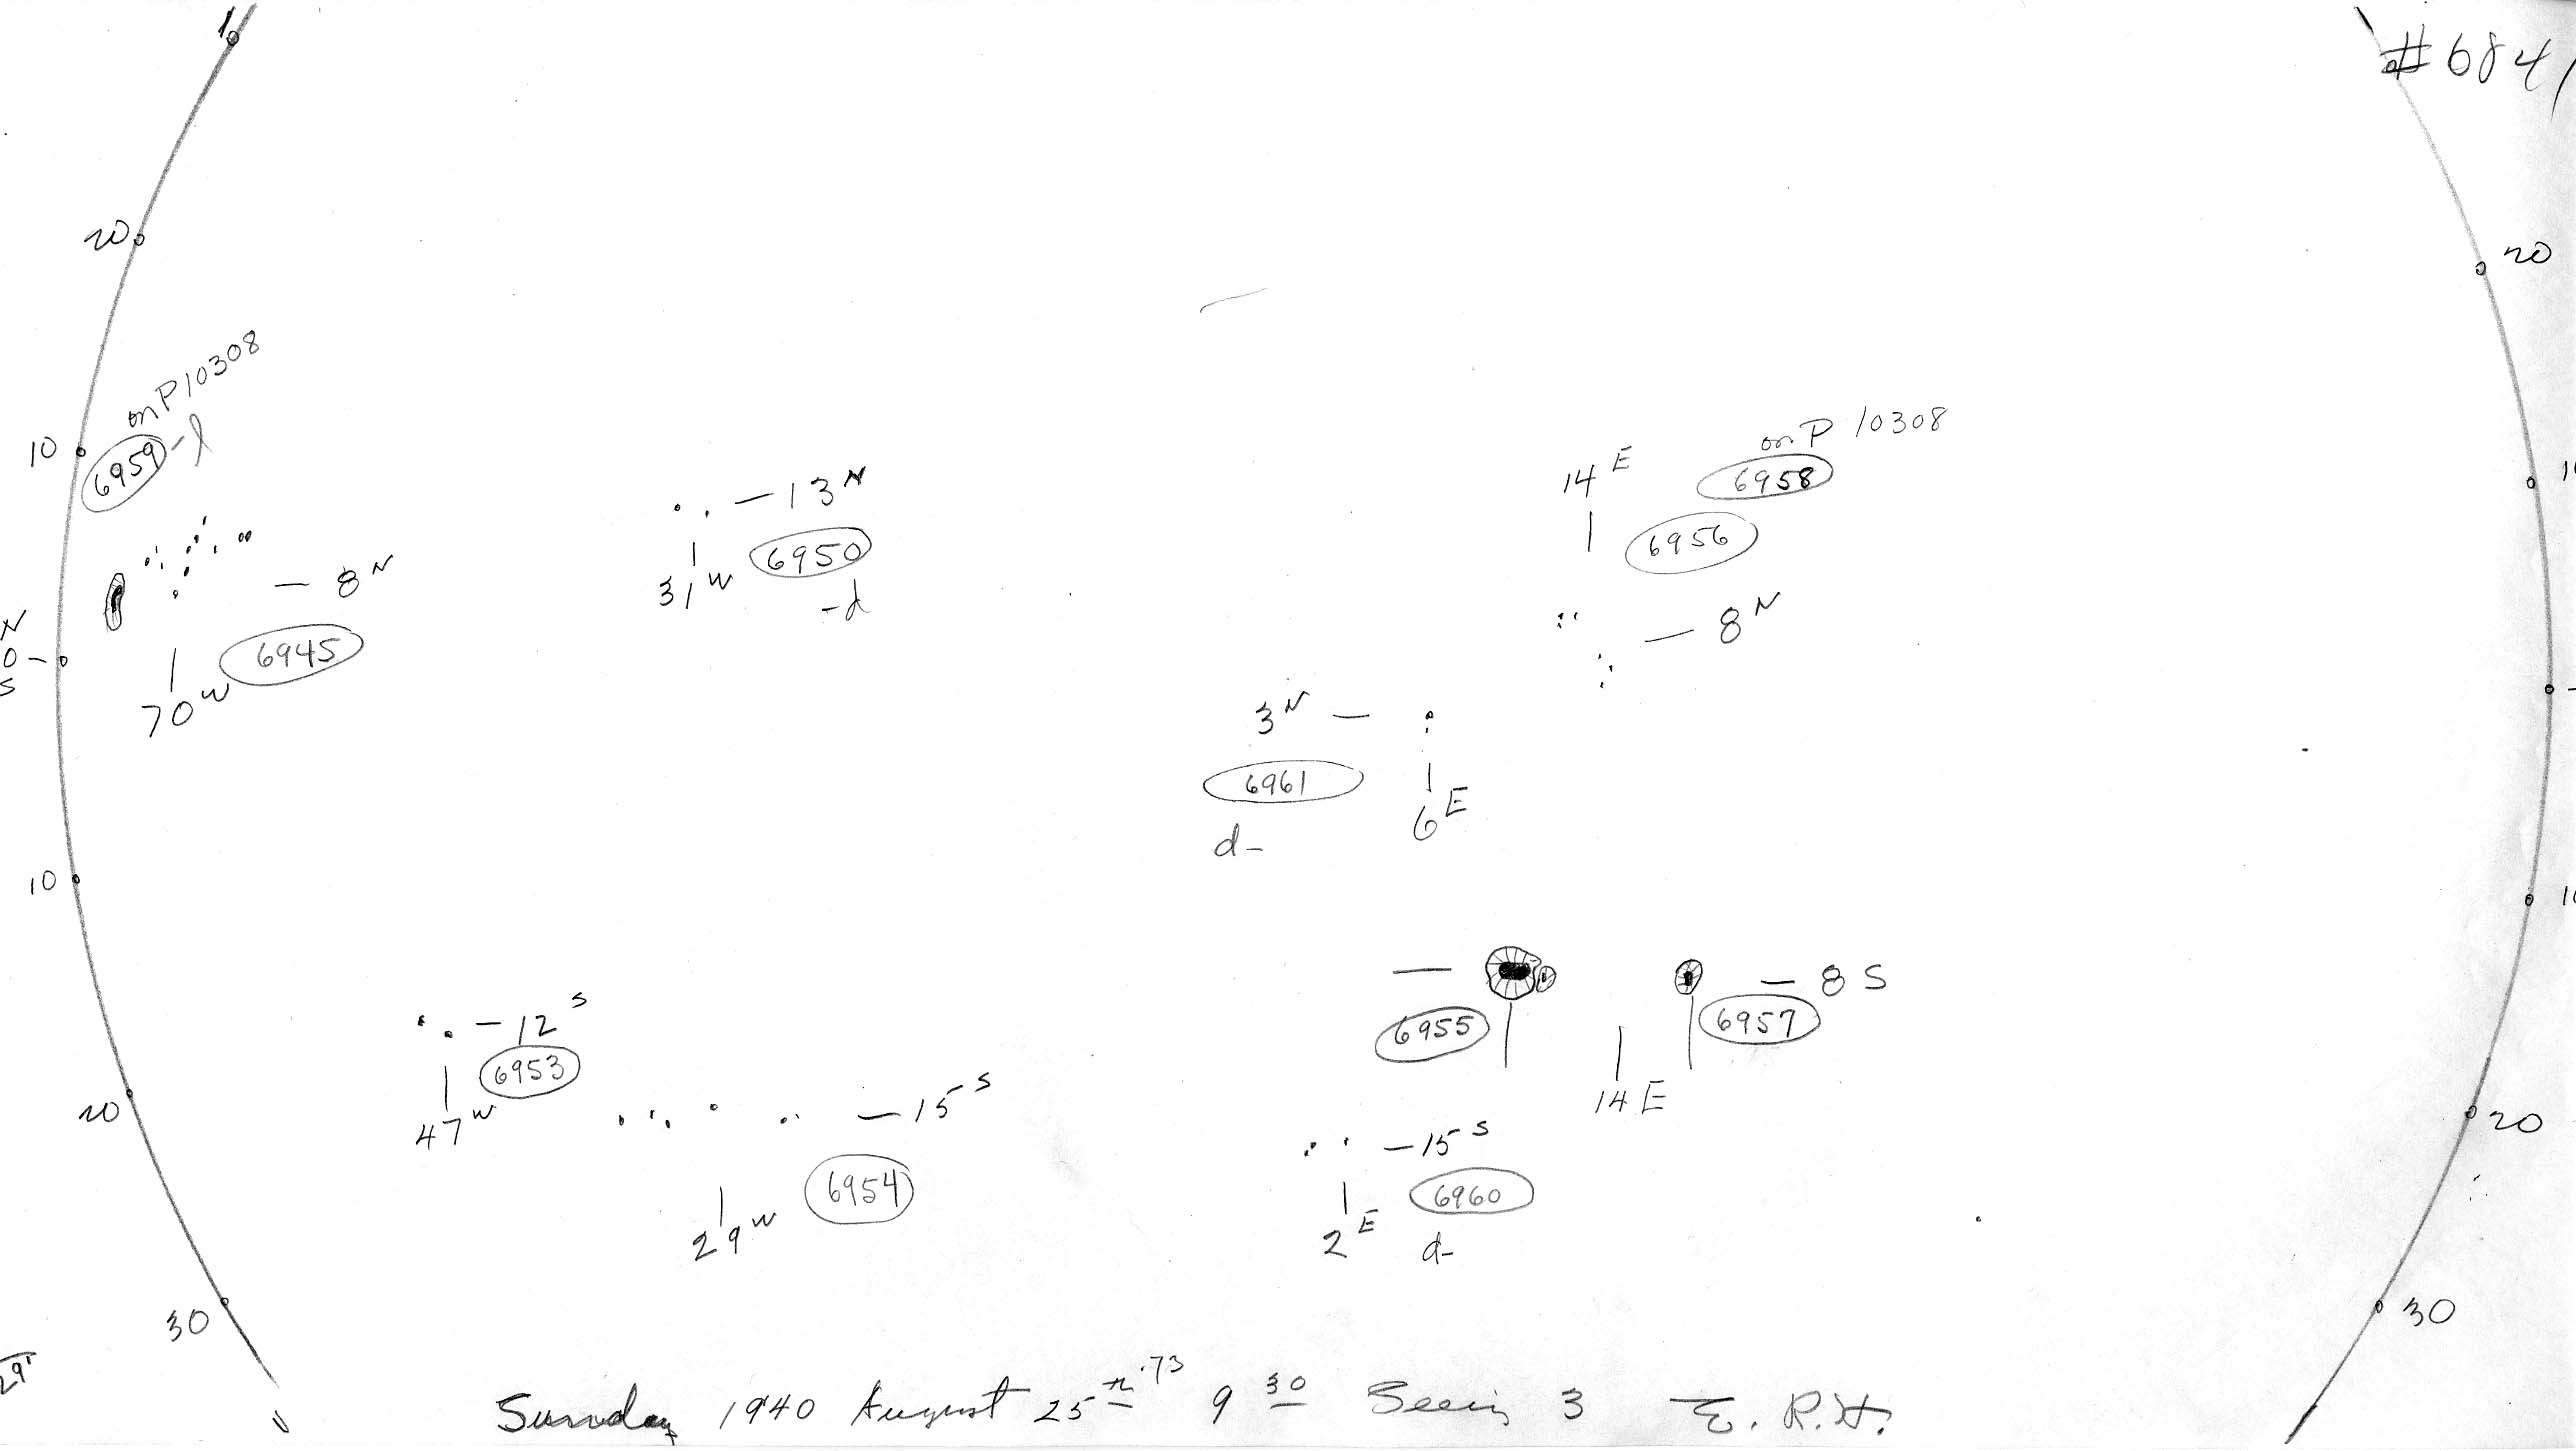 #6841
20
20
on P10308
10
6959 -l
13 N
6950
31 W
-d
8 N
6945
70 W
N
0
S
on P 10308
6958
14 E
6956
8 N
3 N
6961
6 E
d-
10
12 S
6953
47 W
15 S
6954
29 W
6955
6957
8 S
14 E
15 S
6960
2 E
d-
20
20
30
30
Sunday 1940 August 25 th .73 9 30 Seeing 3 E. R. H.